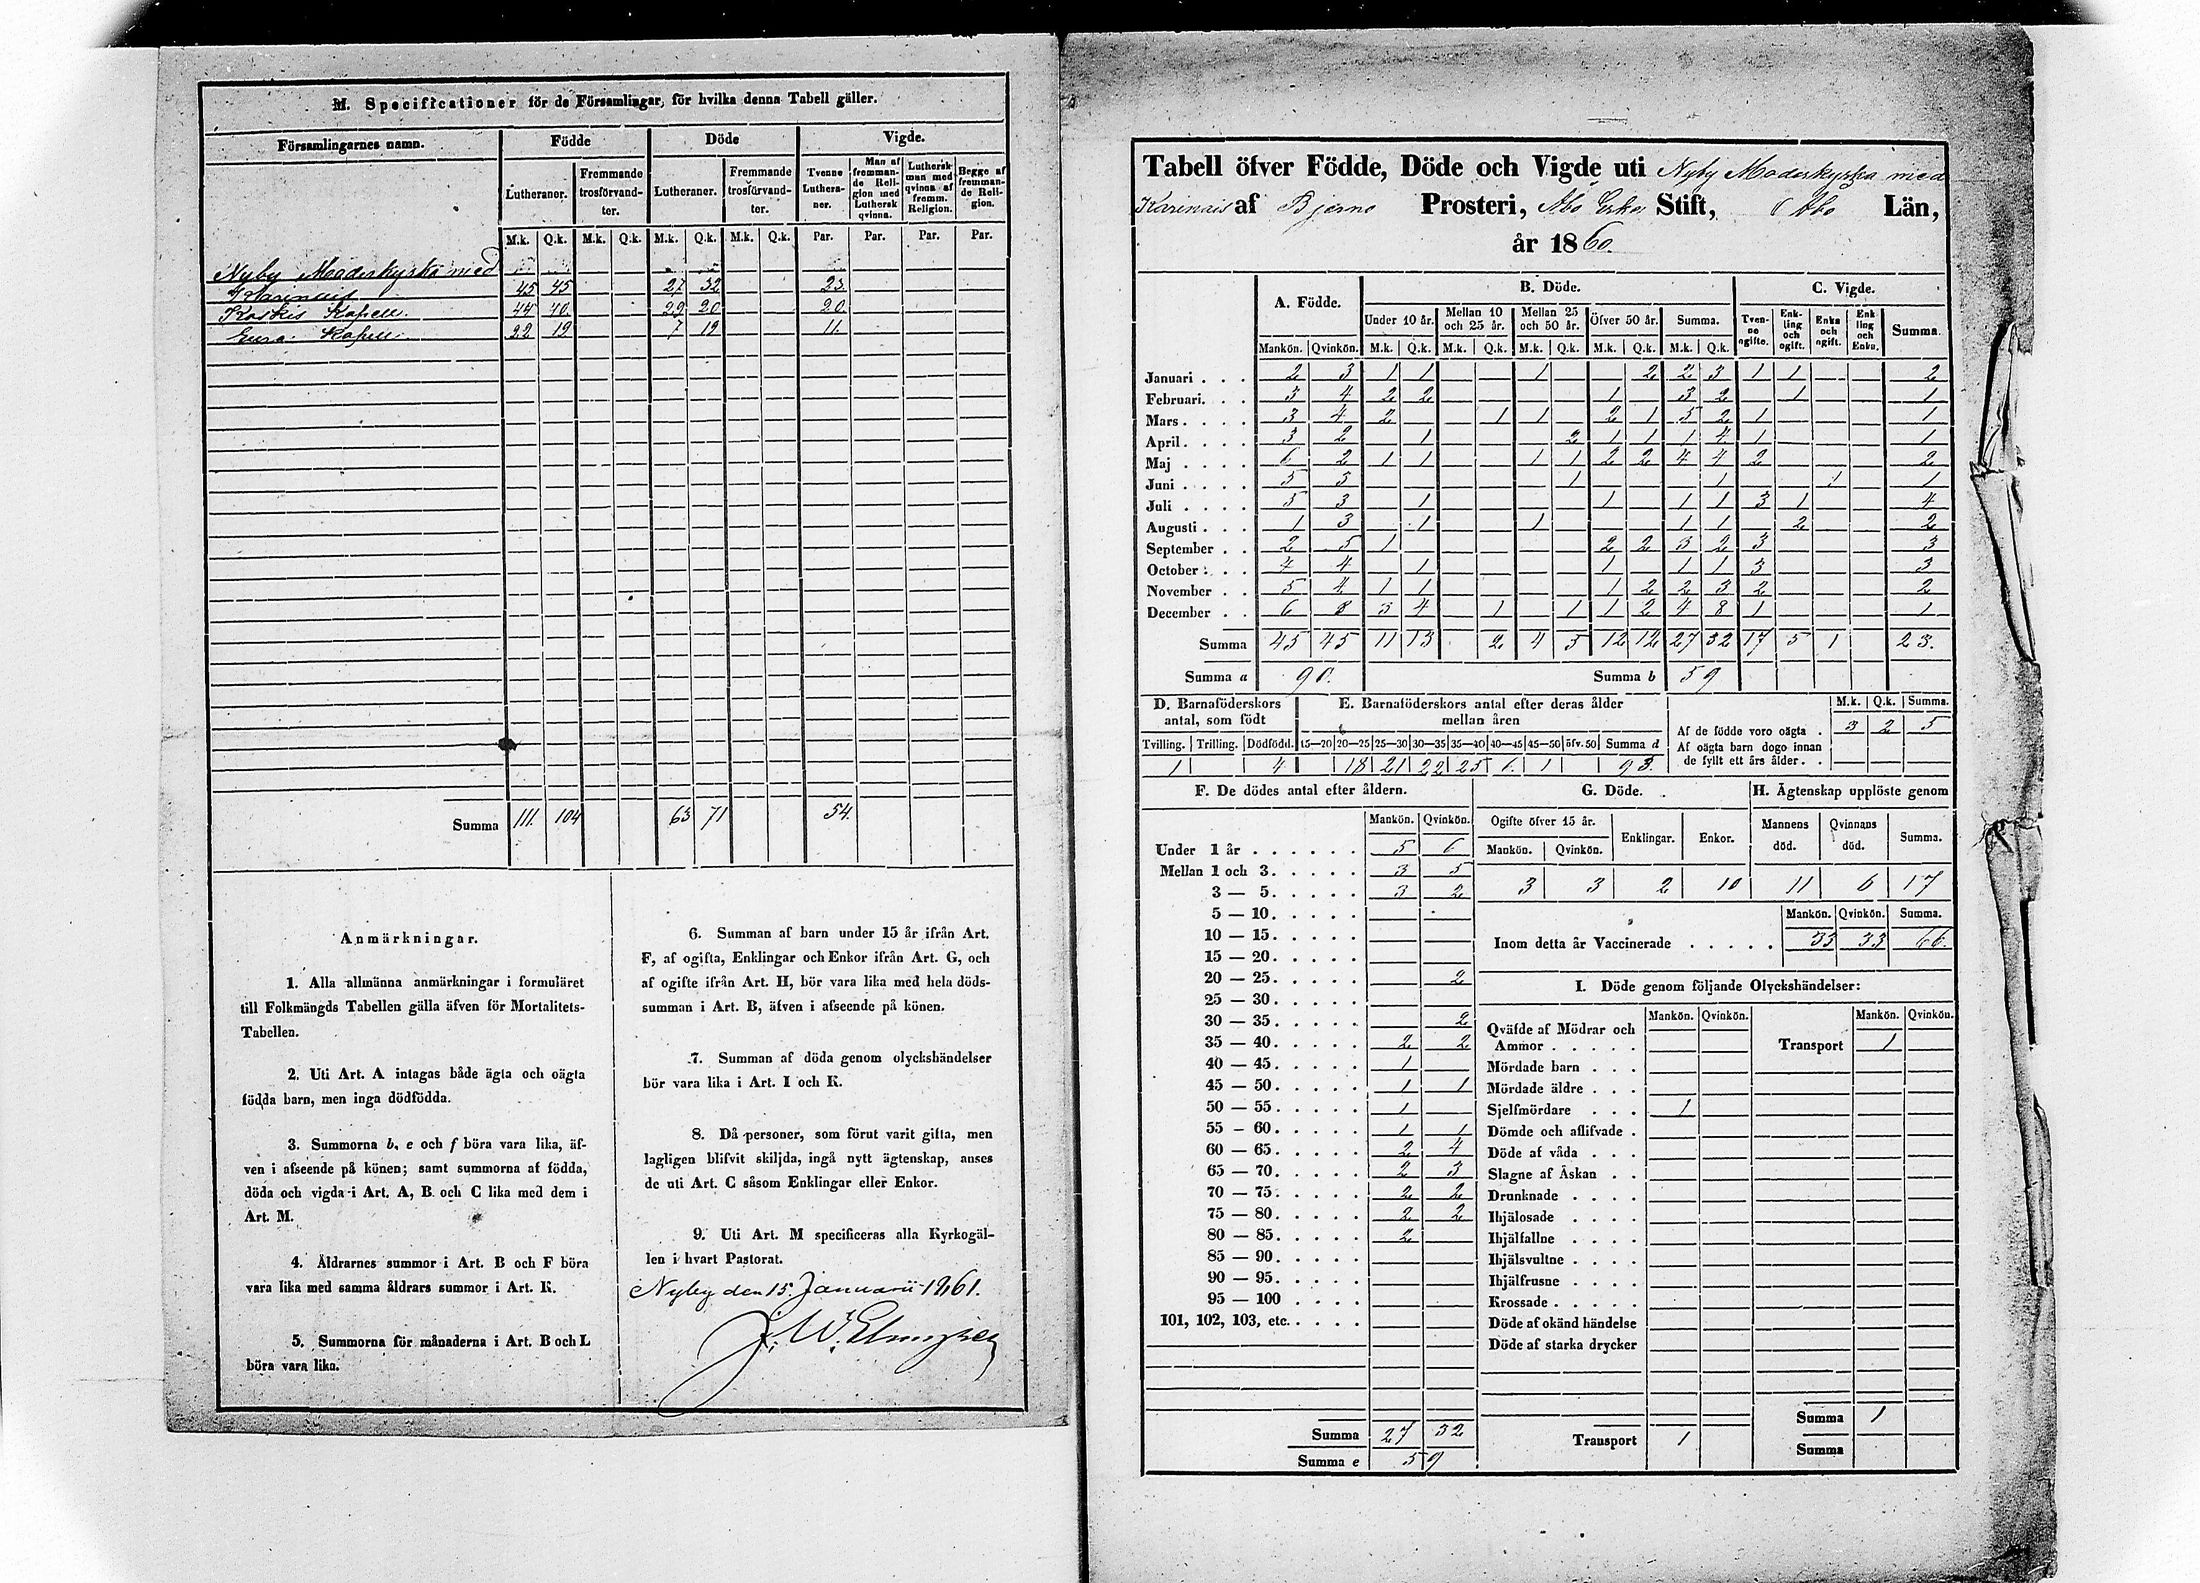 M. Specificationer för de Församlingar, för hvilka denna Tabell gäller.
Församlingarnes namn. | Födde | Döde | Vigde.
Lutheraner. | Fremmande trosförvandter. | Lutheraner. | Fremmande trosförvandter. | Tvenne Lutheraner. | Man af fremmande Religion med Luthersk qvinna. | Luthersk man med qvinna af fremm. Religion. | Begge af fremmande Religion.
M.k. | Q.k. | M.k. | Q.k. | M.k. | Q.k. | M.k. | Q.k. | Par. | Par. | Par. | Par.
Nyby Moderkyrka med
Karinais 45 45 27 32 23
Koskis Kapell. 44 40. 29 20 20.
Eura Kapell. 22 19 7 19 11.
Summa 111. 104 63 71 54.
Anmärkningar.
1. Alla allmänna anmärkningar i formuläret
till Folkmängds Tabellen gälla äfven för Mortalitets-
Tabellen.
2. Uti Art. A intagas både ägta och oägta
födda barn, men inga dödfödda.
3. Summorna b, e och f böra vara lika, äf-
ven i afseende på könen; samt summorna af födda,
döda och vigda i Art. A, B och C lika med dem i
Art. M.
4. Åldrarnes summor i Art. B och F böra
vara lika med samma åldrars summor i Art. K.
5. Summorna för månaderna i Art. B och L
böra vara lika.
6. Summan af barn under 15 år ifrån Art.
F, af ogifta, Enklingar och Enkor ifrån Art. G, och
af ogifte ifrån Art. H, bör vara lika med hela döds-
summan i Art. B, äfven i afseende på könen.
7. Summan af döda genom olyckshändelser
bör vara lika i Art. I och K.
8. Då personer, som förut varit gifta, men
lagligen blifvit skiljda, ingå nytt ägtenskap, anses
de uti Art. C såsom Enklingar eller Enkor.
9. Uti Art. M specificeras alla Kyrkogäl-
len i hvart Pastorat.
Nyby den 15. Januarii 1861.
Tabell öfver Födde, Döde och Vigde uti Nyby Moderkyrka med
Karinais af Bjerno Prosteri, Åbo Erke Stift, Åbo Län,
år 1860.
A. Födde. | B. Döde. | C. Vigde.
Under 10 år. | Mellan 10 och 25 år. | Mellan 25 och 50 år. | Öfver 50 år. | Summa. | Tvenne ogifte. | Enkling och ogift. | Enka och ogift. | Enkling och Enka. | Summa.
Mankön. | Qvinkön. | M.k. | Q.k. | M.k. | Q.k. | M.k. | Q.k. | M.k. | Q.k. | M.k. | Q.k.
Januari . . . 2 3 1 1 1 2 2 3 1 1 2
Februari. . . 3 4 2 2 1 3 2 1 1
Mars . . . . 3 4 2 1 1 2 1 5 2 1 1
April . . . . 3 2 1 2 1 1 1 4 1 1
Maj . . . . 6 2 1 1 1 1 2 2 4 4 2 2
Juni . . . . 5 5 1 1 1 1
Juli . . . . 5 3 1 1 1 1 3 1 4
Augusti . . . 1 3 1 1 1 1 2 2
September . . 2 5 1 2 2 3 2 3 3
October . . . 4 4 1 1 1 1 3 3
November . . 5 2 1 1 1 2 2 3 2 2
December . . 6 8 3 4 1 1 1 2 4 8 1 1
Summa 45 45 11 13 2 4 5 12 12 27 32 17 5 1 23.
Summa a 90. Summa b 59
D. Barnaföderskors antal, som födt | E. Barnaföderskors antal efter deras ålder mellan åren
Tvilling. | Trilling. | Dödfödd. | 15—20 | 20—25 | 25—30 | 30—35 | 35—40 | 40—45 | 45—50 | öfv. 50 | Summa d
1 4 18 21 22 25 6. 1 93.
M.k. | Q.k. | Summa.
Af de födde voro oägta . 3 2 5
Af oägta barn dogo innan
de fyllt ett års ålder . .
F. De dödes antal efter åldern.
Mankön. | Qvinkön.
Under 1 år . . . . . . 5 6
Mellan 1 och 3. . . . . 3 5
3 — 5. . . . . 3 2
5 — 10. . . . .
10 — 15. . . . .
15 — 20. . . . .
20 — 25. . . . . 2
25 — 30. . . . .
30 — 35. . . . . 2
35 — 40. . . . . 2 2
40 — 45. . . . . 1
45 — 50. . . . . 1 1
50 — 55. . . . . 1
55 — 60. . . . . 1 1
60 — 65. . . . . 2 4
65 — 70. . . . . 2 3
70 — 75. . . . . 2 2
75 — 80. . . . . 2 2
80 — 85. . . . . 2
85 — 90. . . . .
90 — 95. . . . .
95 — 100 . . . .
101, 102, 103, etc. . . . .
Summa 27 32
Summa e 59
G. Döde.
Ogifte öfver 15 år. | Enklingar. | Enkor.
Mankön. | Qvinkön.
3 3 2 10
H. Ägtenskap upplöste genom
Mannens död. | Qvinnans död. | Summa.
11 6 17
Mankön. | Qvinkön. | Summa.
Inom detta år Vaccinerade . . . . . 33 33 66.
I. Döde genom följande Olyckshändelser:
Mankön. | Qvinkön. | Mankön. | Qvinkön.
Qväfde af Mödrar och
Ammor . . . . . Transport 1
Mördade barn . . .
Mördade äldre . . .
Sjelfmördare . . . 1
Dömde och aflifvade .
Döde af våda . . .
Slagne af Åskan . .
Drunknade . . . .
Ihjälosade . . . .
Ihjälfallne . . . .
Ihjälsvultne . . . .
Ihjälfrusne . . . .
Krossade . . . . .
Döde af okänd händelse
Döde af starka drycker
Summa 1
Transport 1
Summa